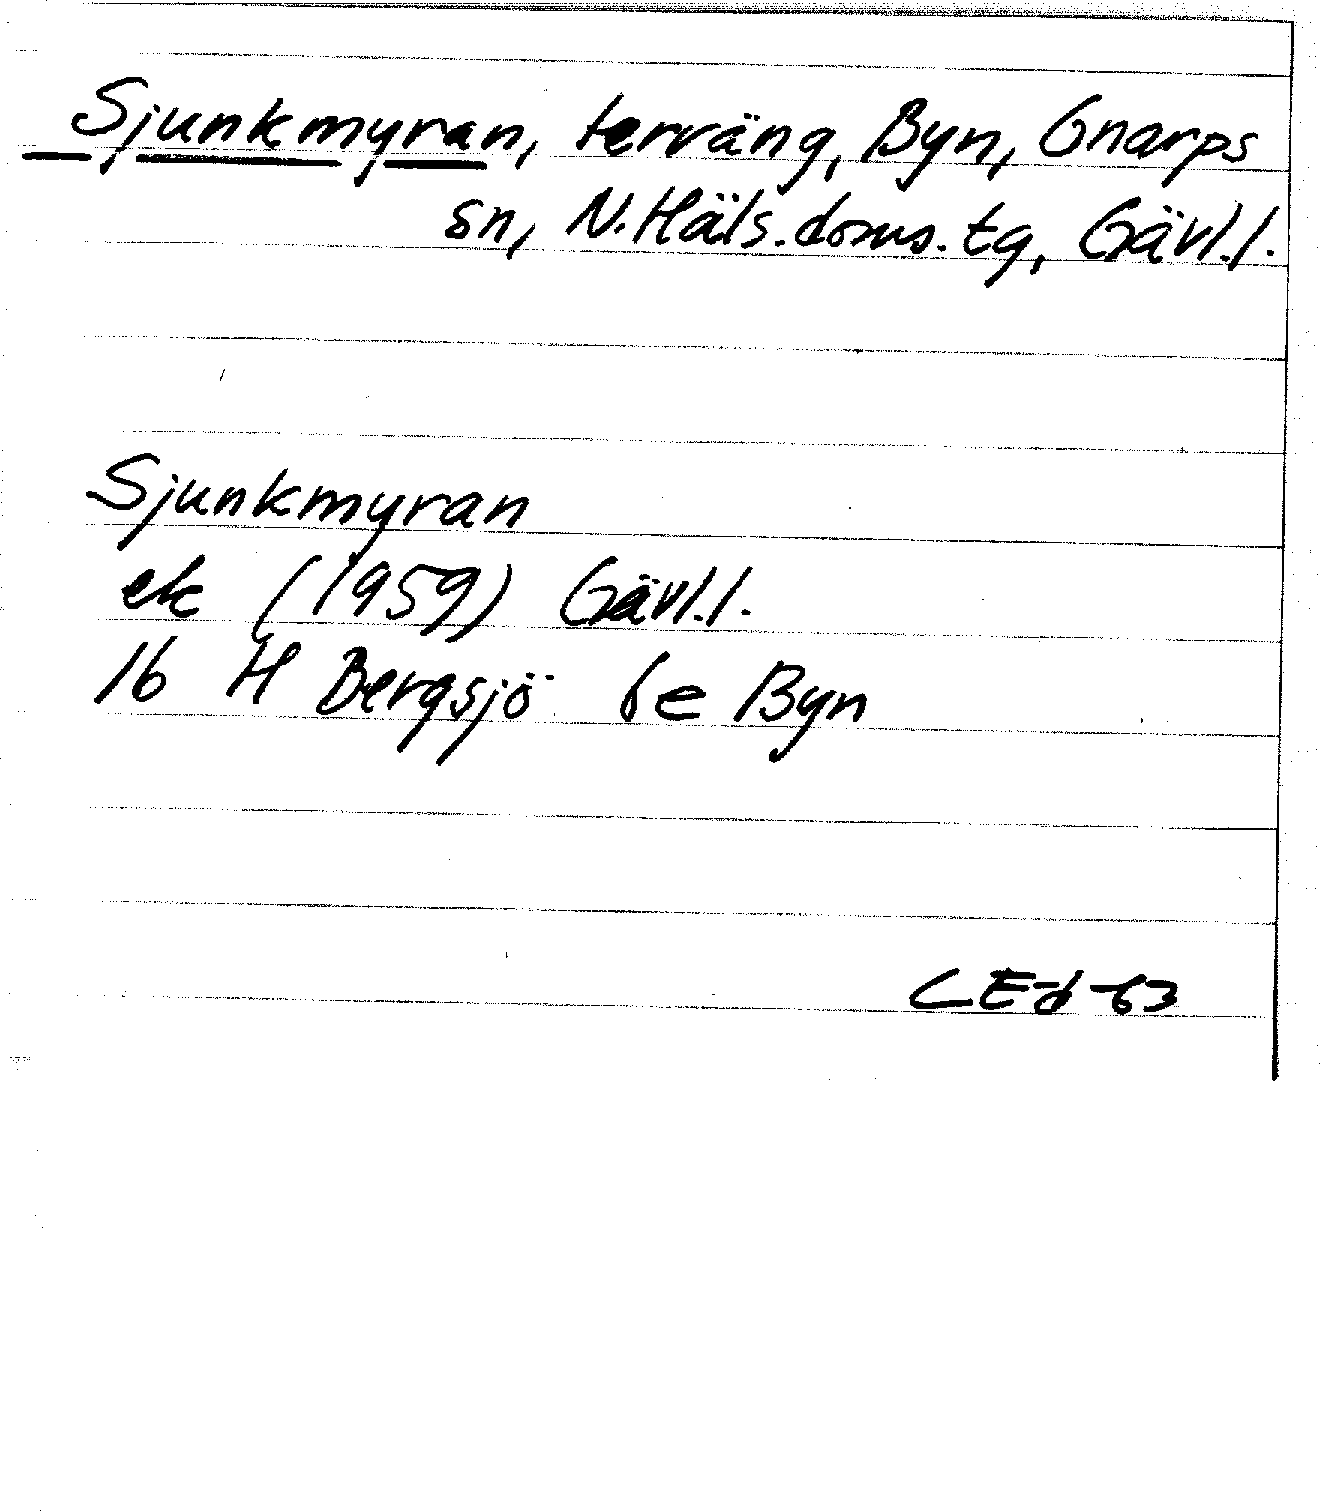 Sjunkmyran, terräng, Byn, Gnarps
sn, N. Häls. doms. tg, Gävl. l.
Sjunkmyran
ek (1959) Gävl. l.
16 H Bergsjö 6e Byn
CEd -63